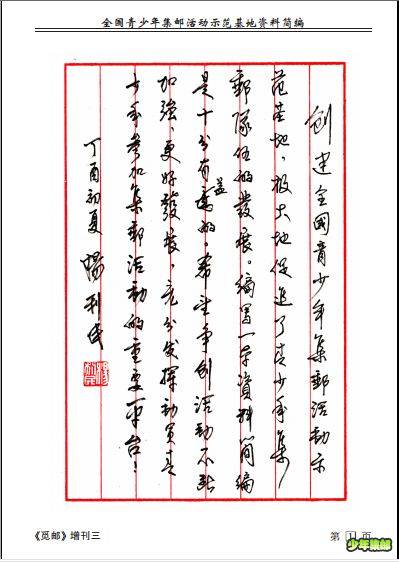 全国青少年集邮活动示范基地资料简编
创建全國青少年集郵活動示
范基地，极大地促進了青少年集
郵隊伍的發展。编写一本資料簡編
是十分有益的。希望争创活动不断
加強、更好發展，充分发揮动员青
少年参加集郵活动的重要平台！
丁酉初夏 楊利民
《觅邮》增刊三
第 1 页
少年集邮